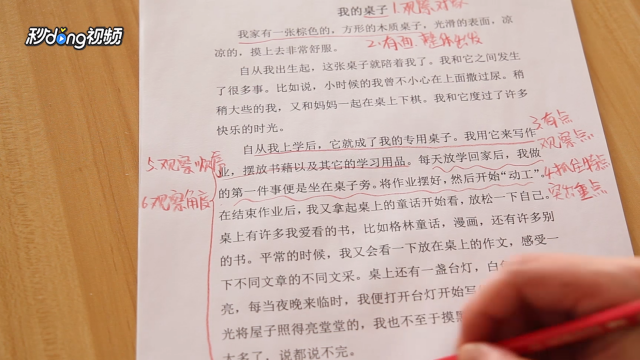 秒dong视频
我的桌子 1.观察对象
我家有一张棕色的，方形的木质桌子，光滑的表面，凉
凉的，摸上去非常舒服。
自从我出生起，这张桌子就陪着我了。我和它之间发生
了很多事。比如说，小时候的我曾不小心在上面撒过尿。稍
稍大些的我，又和妈妈一起在桌上下棋。我和它度过了许多
快乐的时光。
3.有点
自从我上学后，它就成了我的专用桌子。我用它来写作
观察点
5.观察顺序
业，摆放书籍以及其它的学习用品。每天放学回家后，我做
的第一件事便是坐在桌子旁。将作业摆好，然后开始“动工”。
突出重点
6.观察角度
在结束作业后，我又拿起桌上的童话开始看，放松一下自己。
桌上有许多我爱看的书，比如格林童话，漫画，还有许多别
的书。平常的时候，我又会看一下放在桌上的作文，感受一
下不同文章的不同文采。桌上还有一盏台灯，
亮，每当夜晚来临时，我便打开台灯开始写
光将屋子照得亮堂堂的，我也不至于摸黑
太多了，说都说不完。